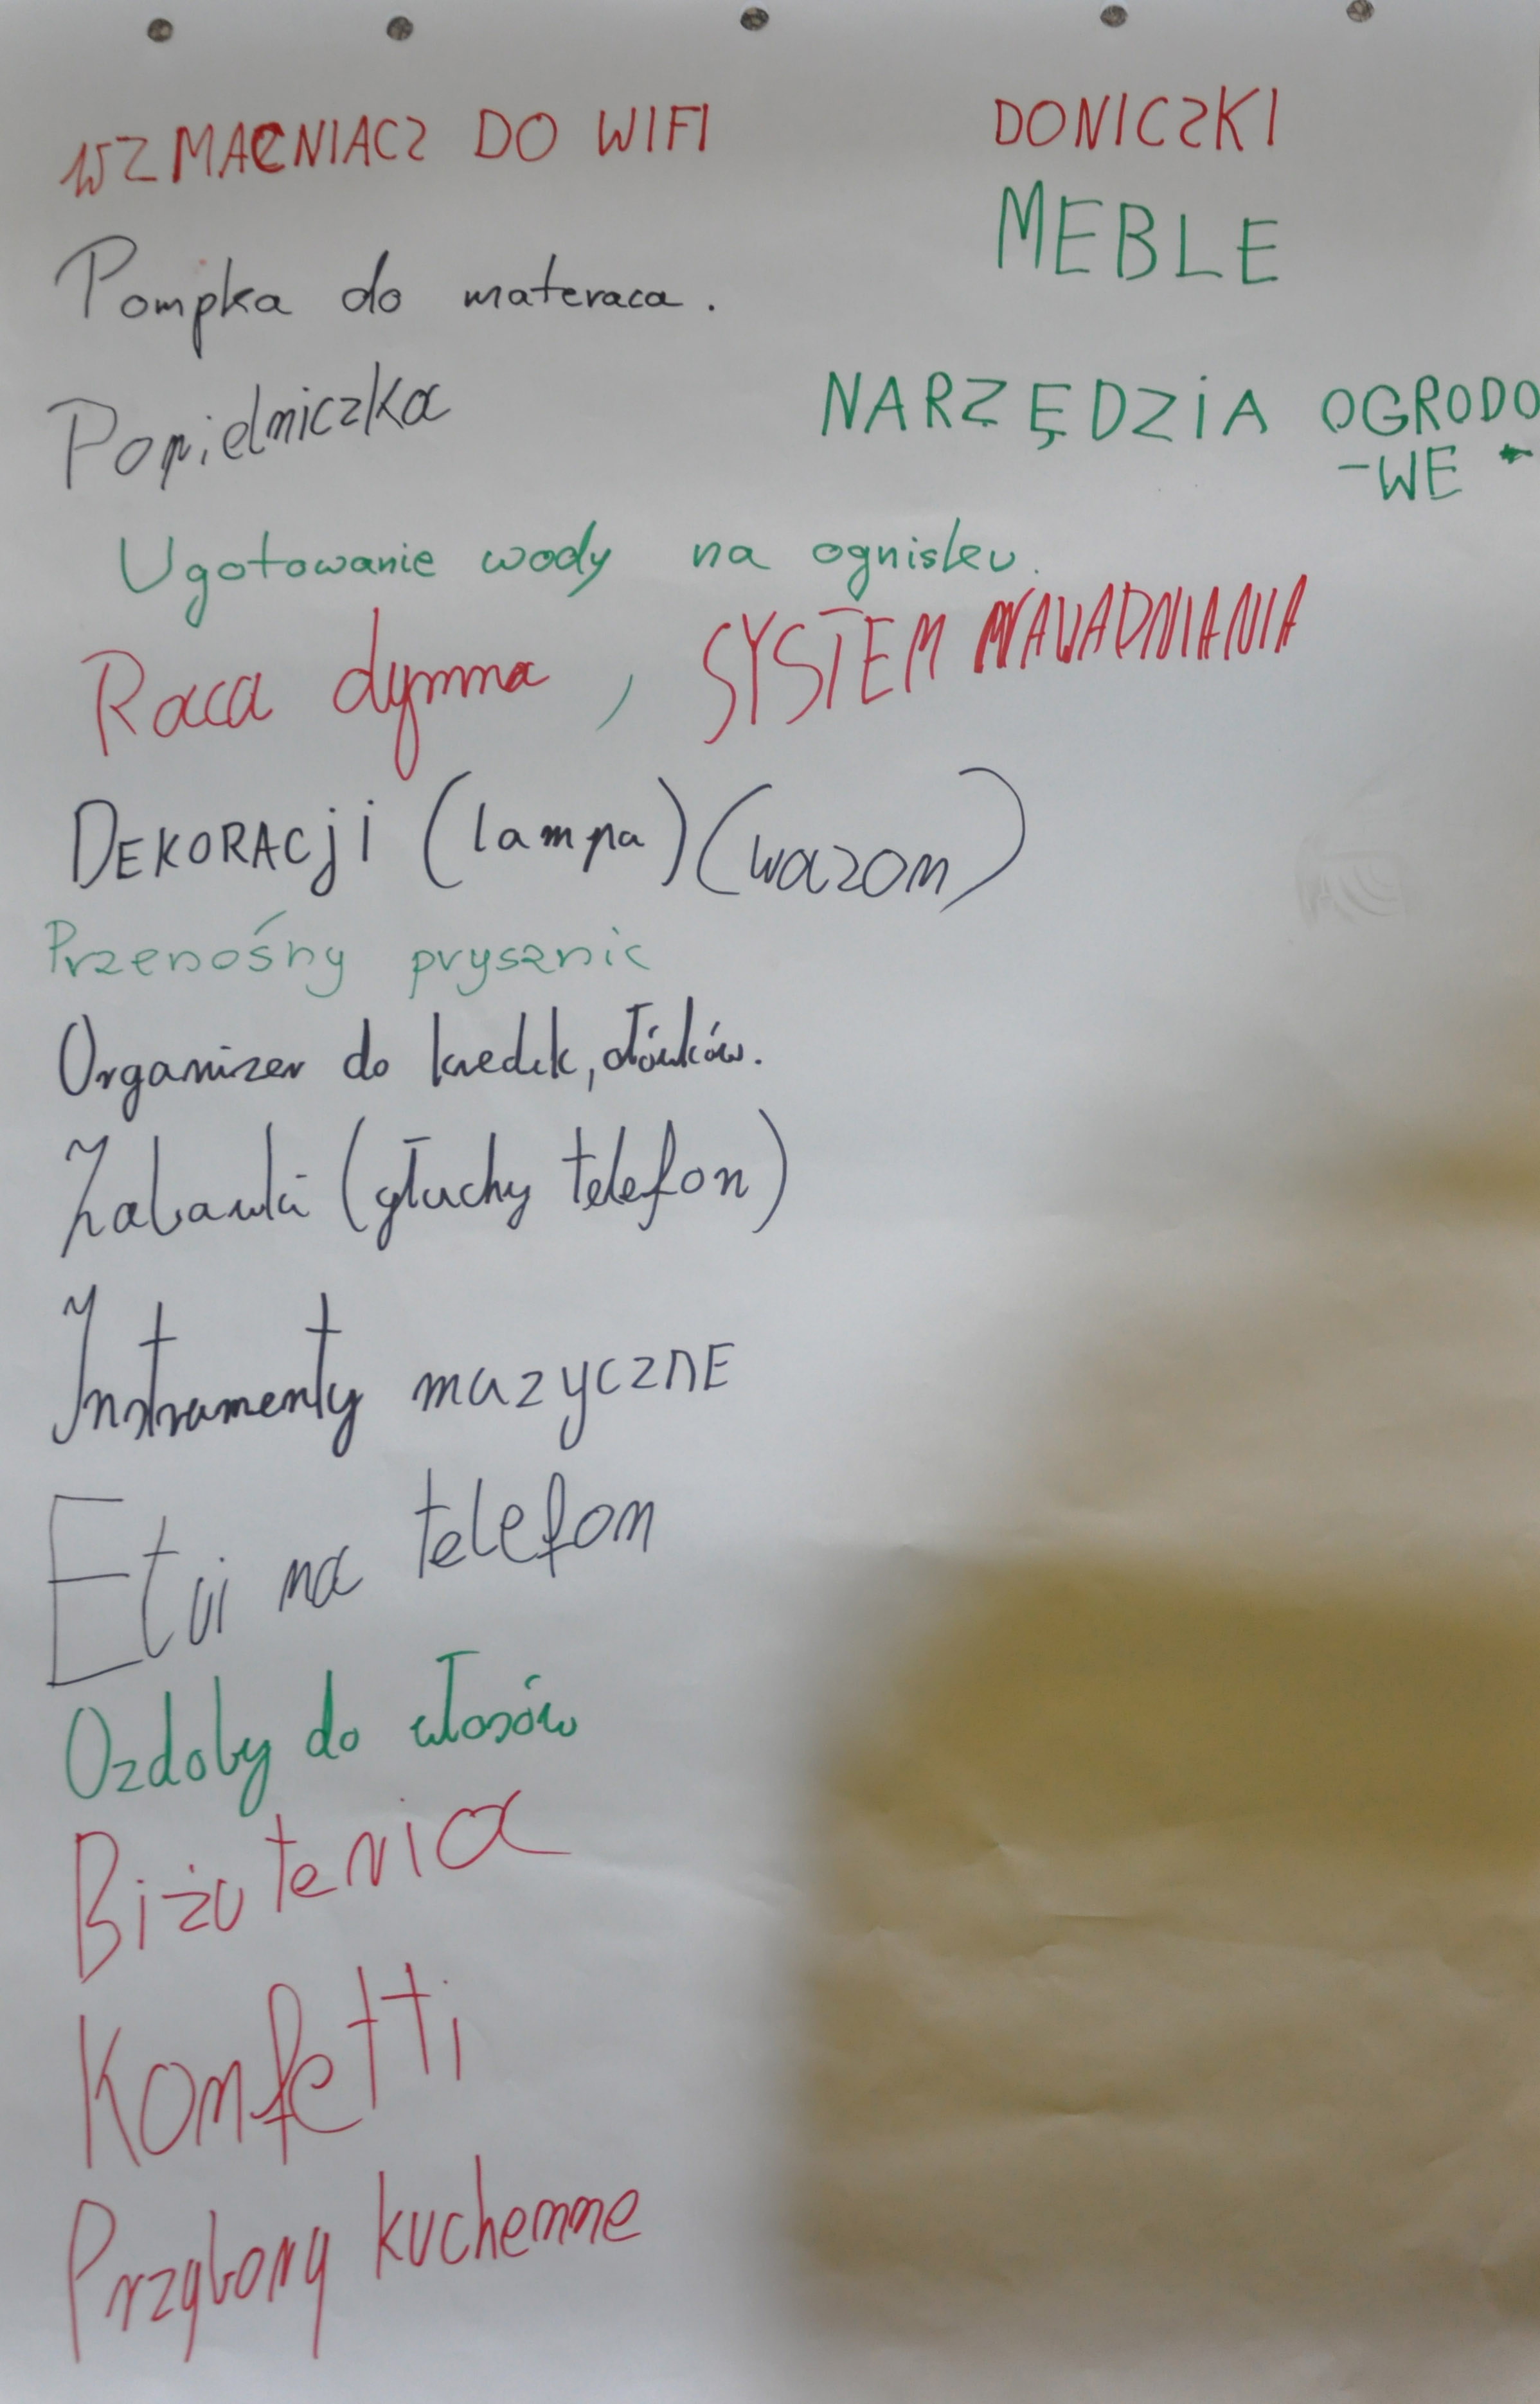 WZMACNIACZ DO WIFI
DONICZKI
MEBLE
Pompka do materaca.
Popielniczka
NARZĘDZIA OGRODO
-WE
Ugotowanie wody na ognisku.
Raca dymna, SYSTEM NAWADNIANIA
DEKORACji (lampa) (wazon)
Przenośny prysznic
Organizer do kredek, ołówków.
Zabawki (głuchy telefon)
Instrumenty muzyczne
Etui na telefon
Ozdoby do włosów
Biżuteria
Konfetti
Przybory kuchenne